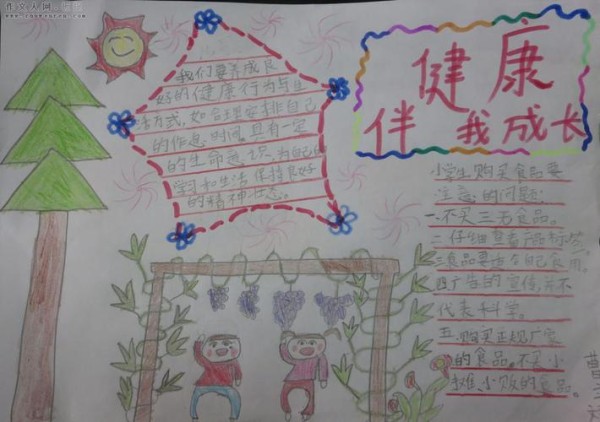 作文人网
健康
伴我成长
我们要养成良
好的健康行为与生
活方式,如合理安排自己
的作息时间,具有一定
的生命意识,为自己的
学习和生活保持良好
的精神状态。
小学生购买食品要
注意的问题:
一.不买三无食品。
二.仔细查看产品标签。
三.食品要适合自己食用。
四.广告的宣传,并不
代表科学。
五.购买正规厂家
的食品。不买小
摊、小贩的食品。